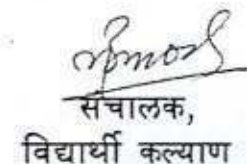 संचालक,
विद्यार्थी कल्याण